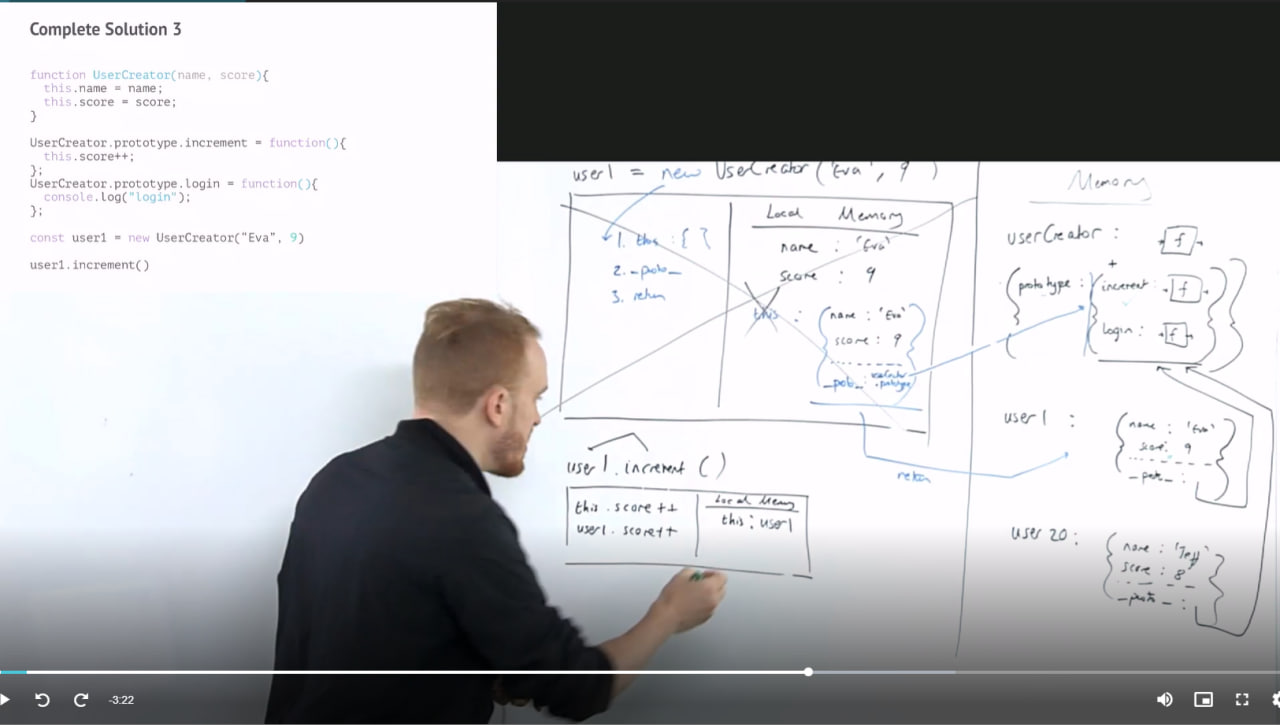 Complete Solution 3
function UserCreator(name, score){
this.name = name;
this.score = score;
}
UserCreator.prototype.increment = function(){
this.score++;
};
UserCreator.prototype.login = function(){
console.log("login");
};
const user1 = new UserCreator("Eva", 9)
user1.increment()
user1 = new UserCreator('Eva', 9)
Local Memory
1. this : { }
name : 'Eva'
2. _proto_
score : 9
3. return
this :
name : 'Eva'
score : 9
_proto_ : userCreator
.prototype
return
user1.increment ()
Local Memory
this.score ++
this : user1
user1.score++
Memory
userCreator : f
+
prototype : increment : f
login : f
user1 :
name : 'Eva'
score : 9
_proto_ :
user 20 :
name : 'Jeff'
score : 8
_proto_ :
-3:22